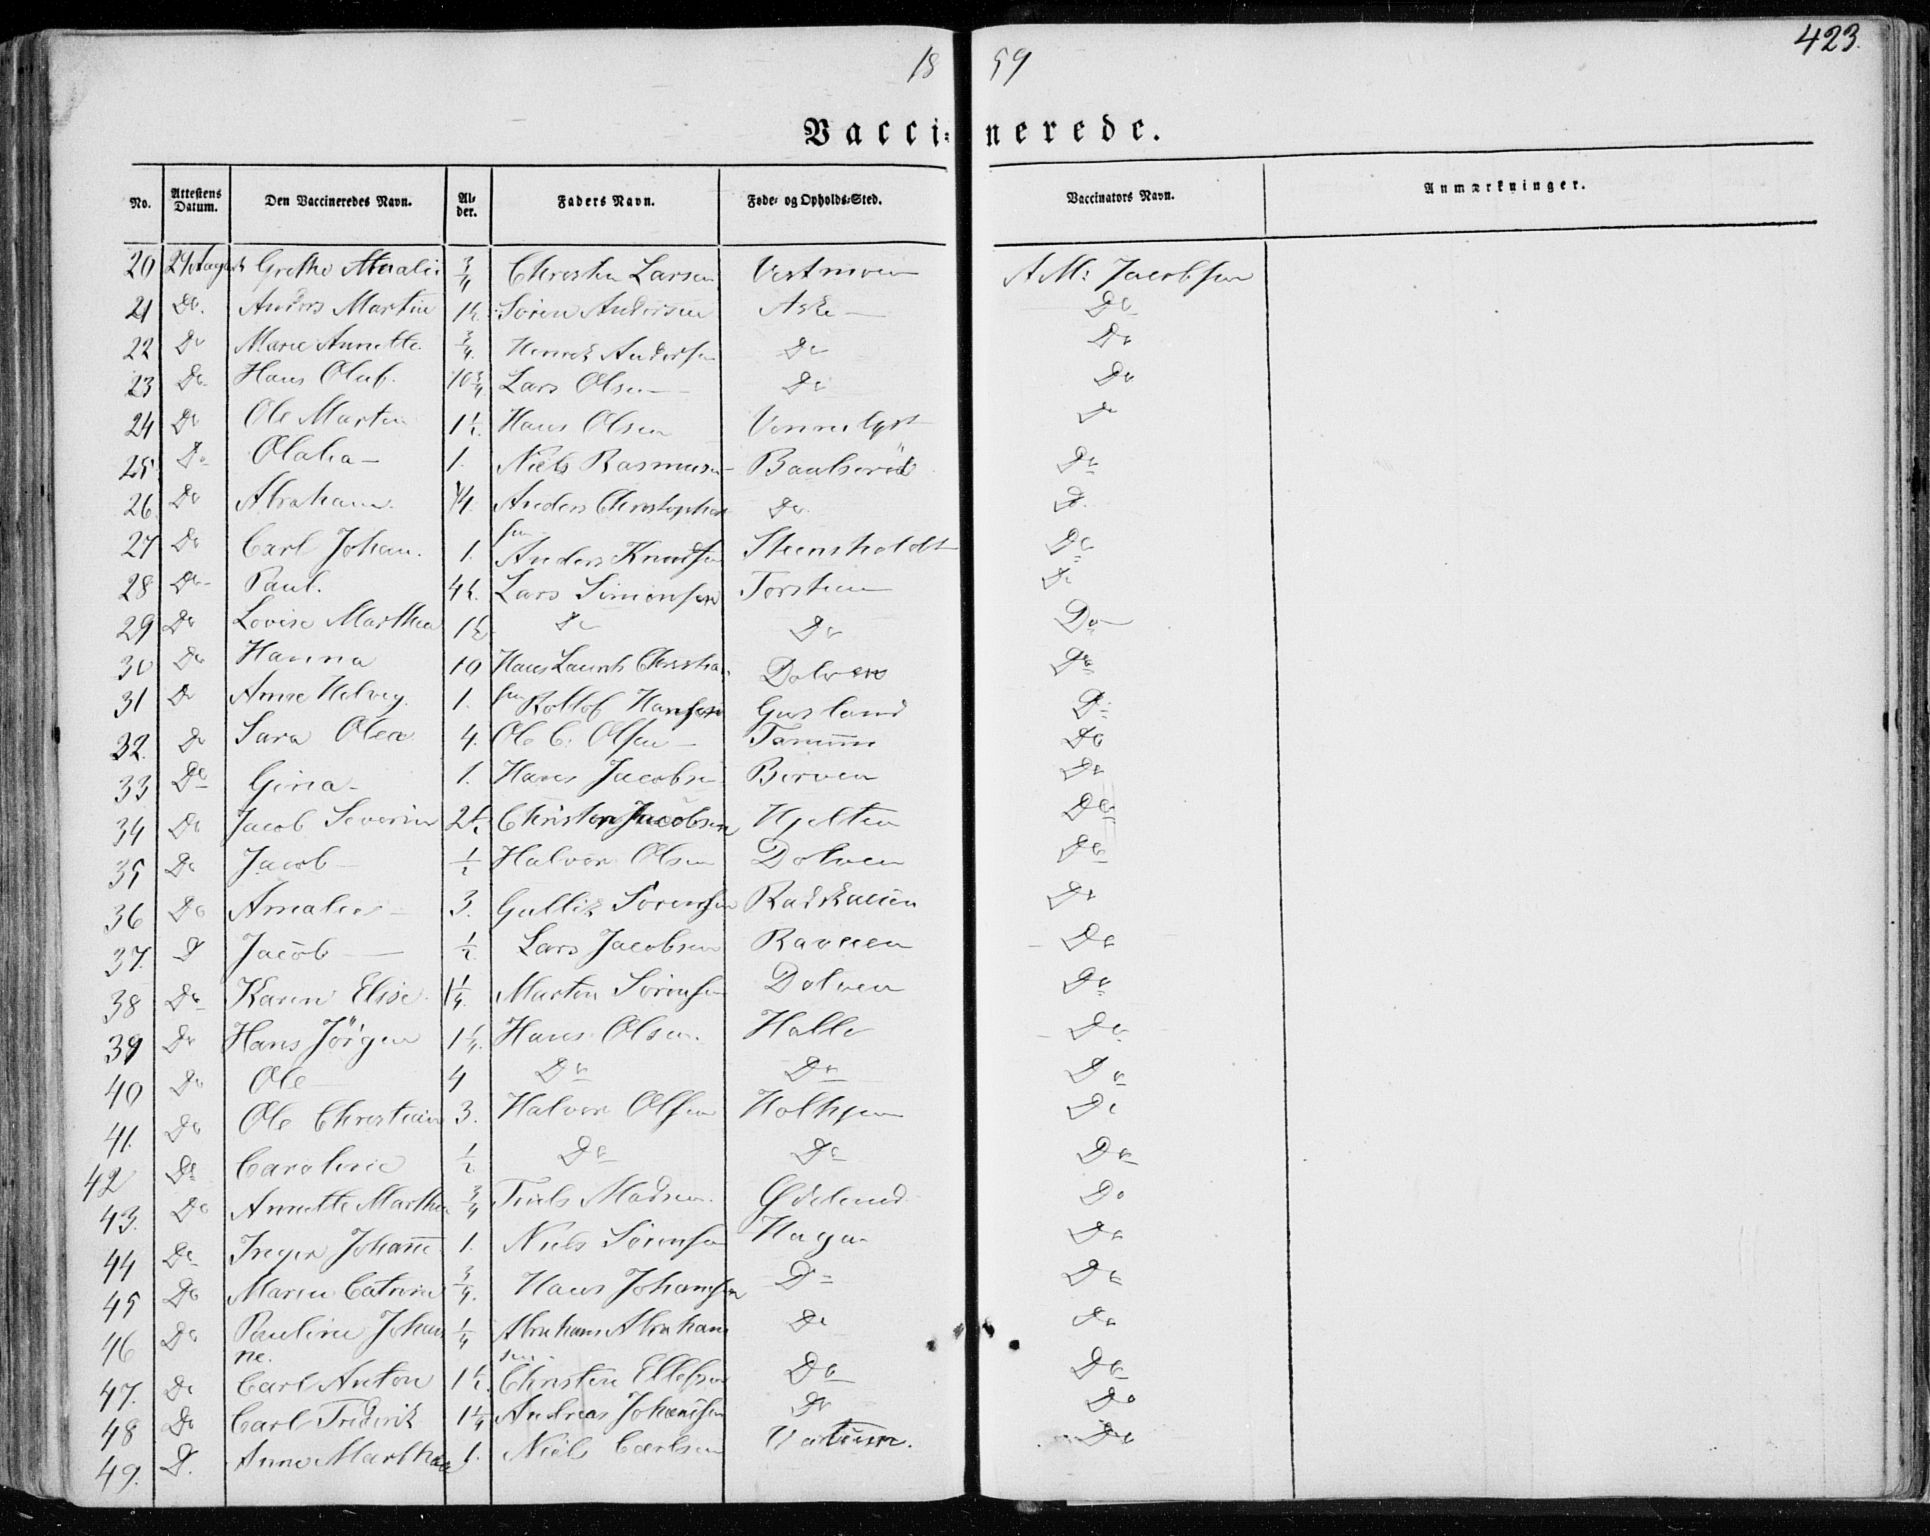 423.
18 59
Vacci- nerede.
No. Attestens Datum. Den Vaccineredes Navn. Al- der. Faders Navn. Føde- og Opholds-Sted. Vaccinators Navn. Anmærkninger.
20 29 August Grethe Amalie 3/4 Christen Larsen Vestmoen A M: Jacobsen
21 Do. Anders Martin 1½. Sören Andersen Aske — Do
22 Do Maren Annette. 3/4. Henrik Andersen Do Do
23 Do. Hans Oluf. 10 3/4 Lars Olsen — Do Do
24 Do Ole Martin 1½. Hans Olsen Vennelyst Do
25 Do Olalia — 1. Niels Rasmusen — Baulseröd Do
26 Do Abraham. 1/4. Anders Christophersen Do D.
27 Do Carl Johan. 1. Anders Knudsen Steensholdt Do
28 Do Paul. 4½. Lars Simonsen Torstein Do
29 Do Lovise Marthea 1½ Do Do Do
30 Do Hanna 10 Hans Laurits Christian- Dolven Do
31 Do Anne Helveg. 1. sen Rollof Hansen Gusland Do
32. Do Sara Olea 4. Ole C. Olsen — Tanum Do
33 Do Gina — 1. Hans Jacobsen Berven Do
34 Do Jacob Severin 2½. Christen Jacobsen Hjelten Do
35 Do Jacob — ½ Halvor Olsen Dolven Do
36 Do Amalie — 3. Gullik Sörensen Do
37. D Jacob — ½. Lars Jacobsen Ravnen Do
38 Do Karen Elise. 1¼. Martin Sörensen Dolven Do
39 Do Hans Jörgen 1¼. Hans Olsen. Halle Do
40 Do Ole — 4 Do Do Do
41. Do Ole Christian 3. Halvor Olsen Do
42 Do Caroline ½ Do Do Do
43. Do Annette Marthea 3/4 Truls Madsen. Ødelund Do
44 Do Inger Johanne 1. Niels Sörensen Haga Do
45 Do Maren Catrine 3/4. Hans Johansen Do Do
46 Do Pauline Johan ¼ Abraham Abraham Do Do
ne. sen.
47. Do Carl Anton 1½. Christen Ellefsen Do Do
48 Do Carl Frederik 1¼ Andreas Johansen Do Do
49. D. Anne Marthea 1. Niels Carlsen Do